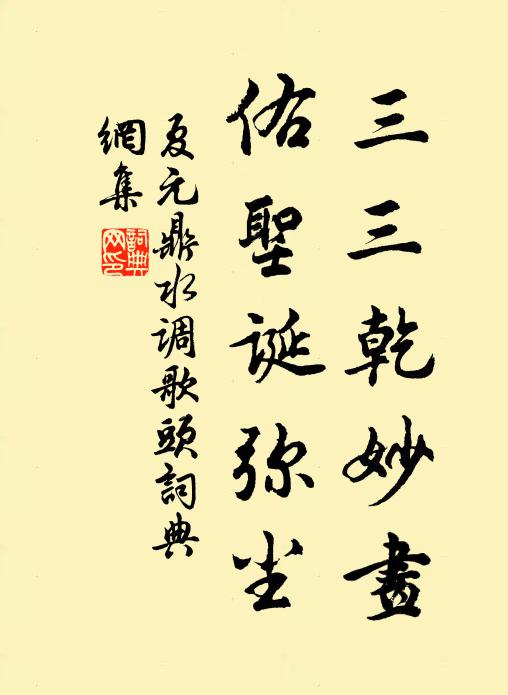 三三乾妙畫
佑聖誕弥尘
夏元鼎水调歌頭詞典
網集
詞典
网印